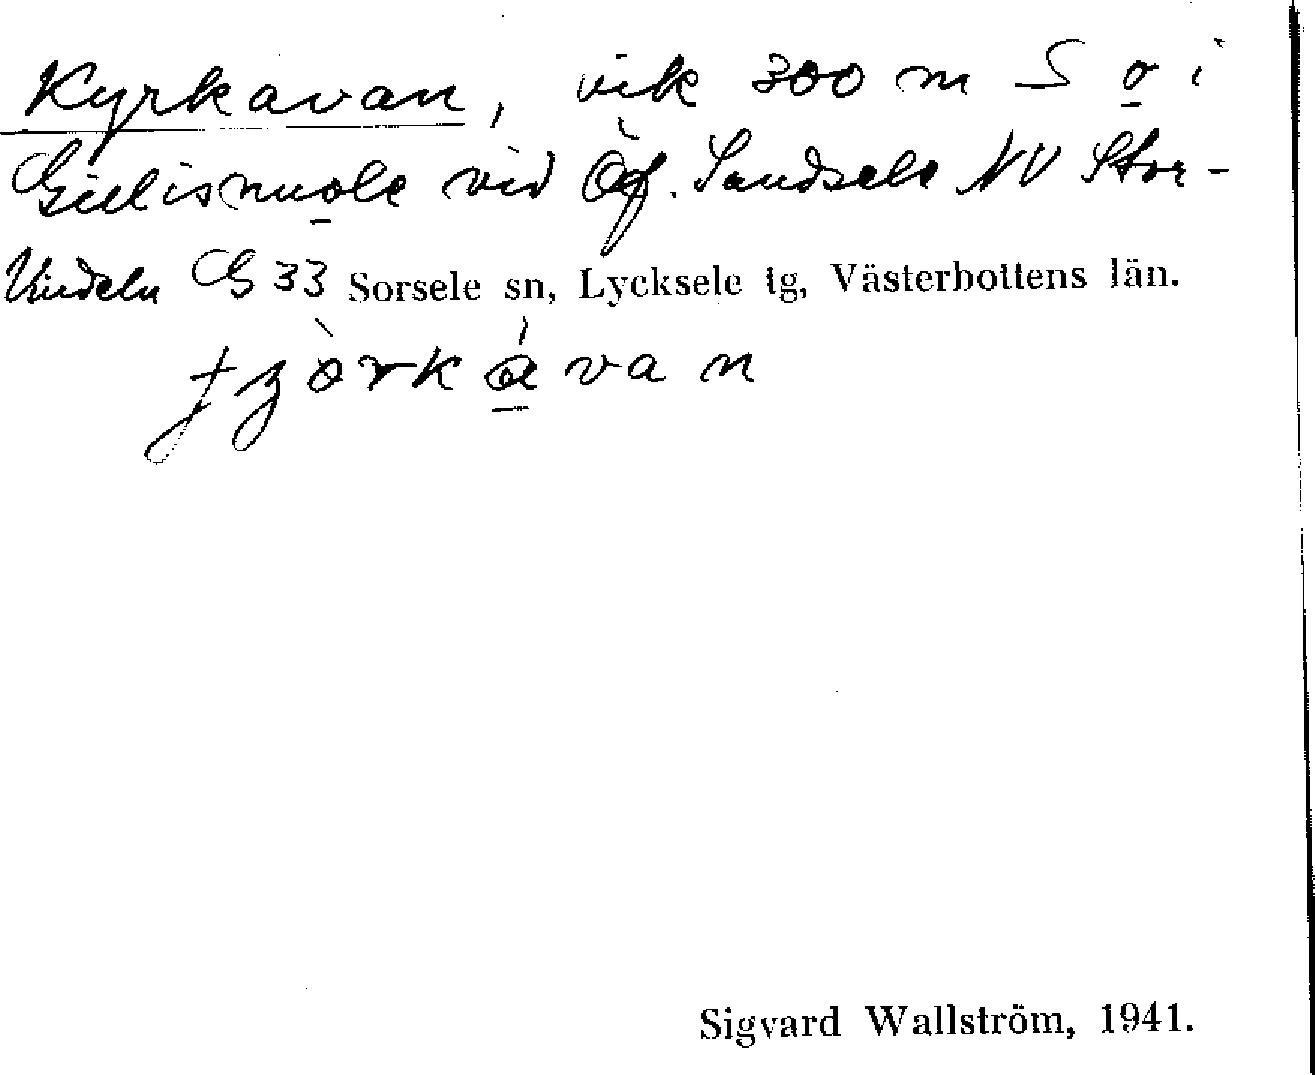 Kyrkavan, vik 300 m S o i
Gillisnuole vid Öf. Sandsele NV Stor-
Vindeln G 33 Sorsele sn, Lycksele tg, Västerbottens län.
Sigvard Wallström, 1941.